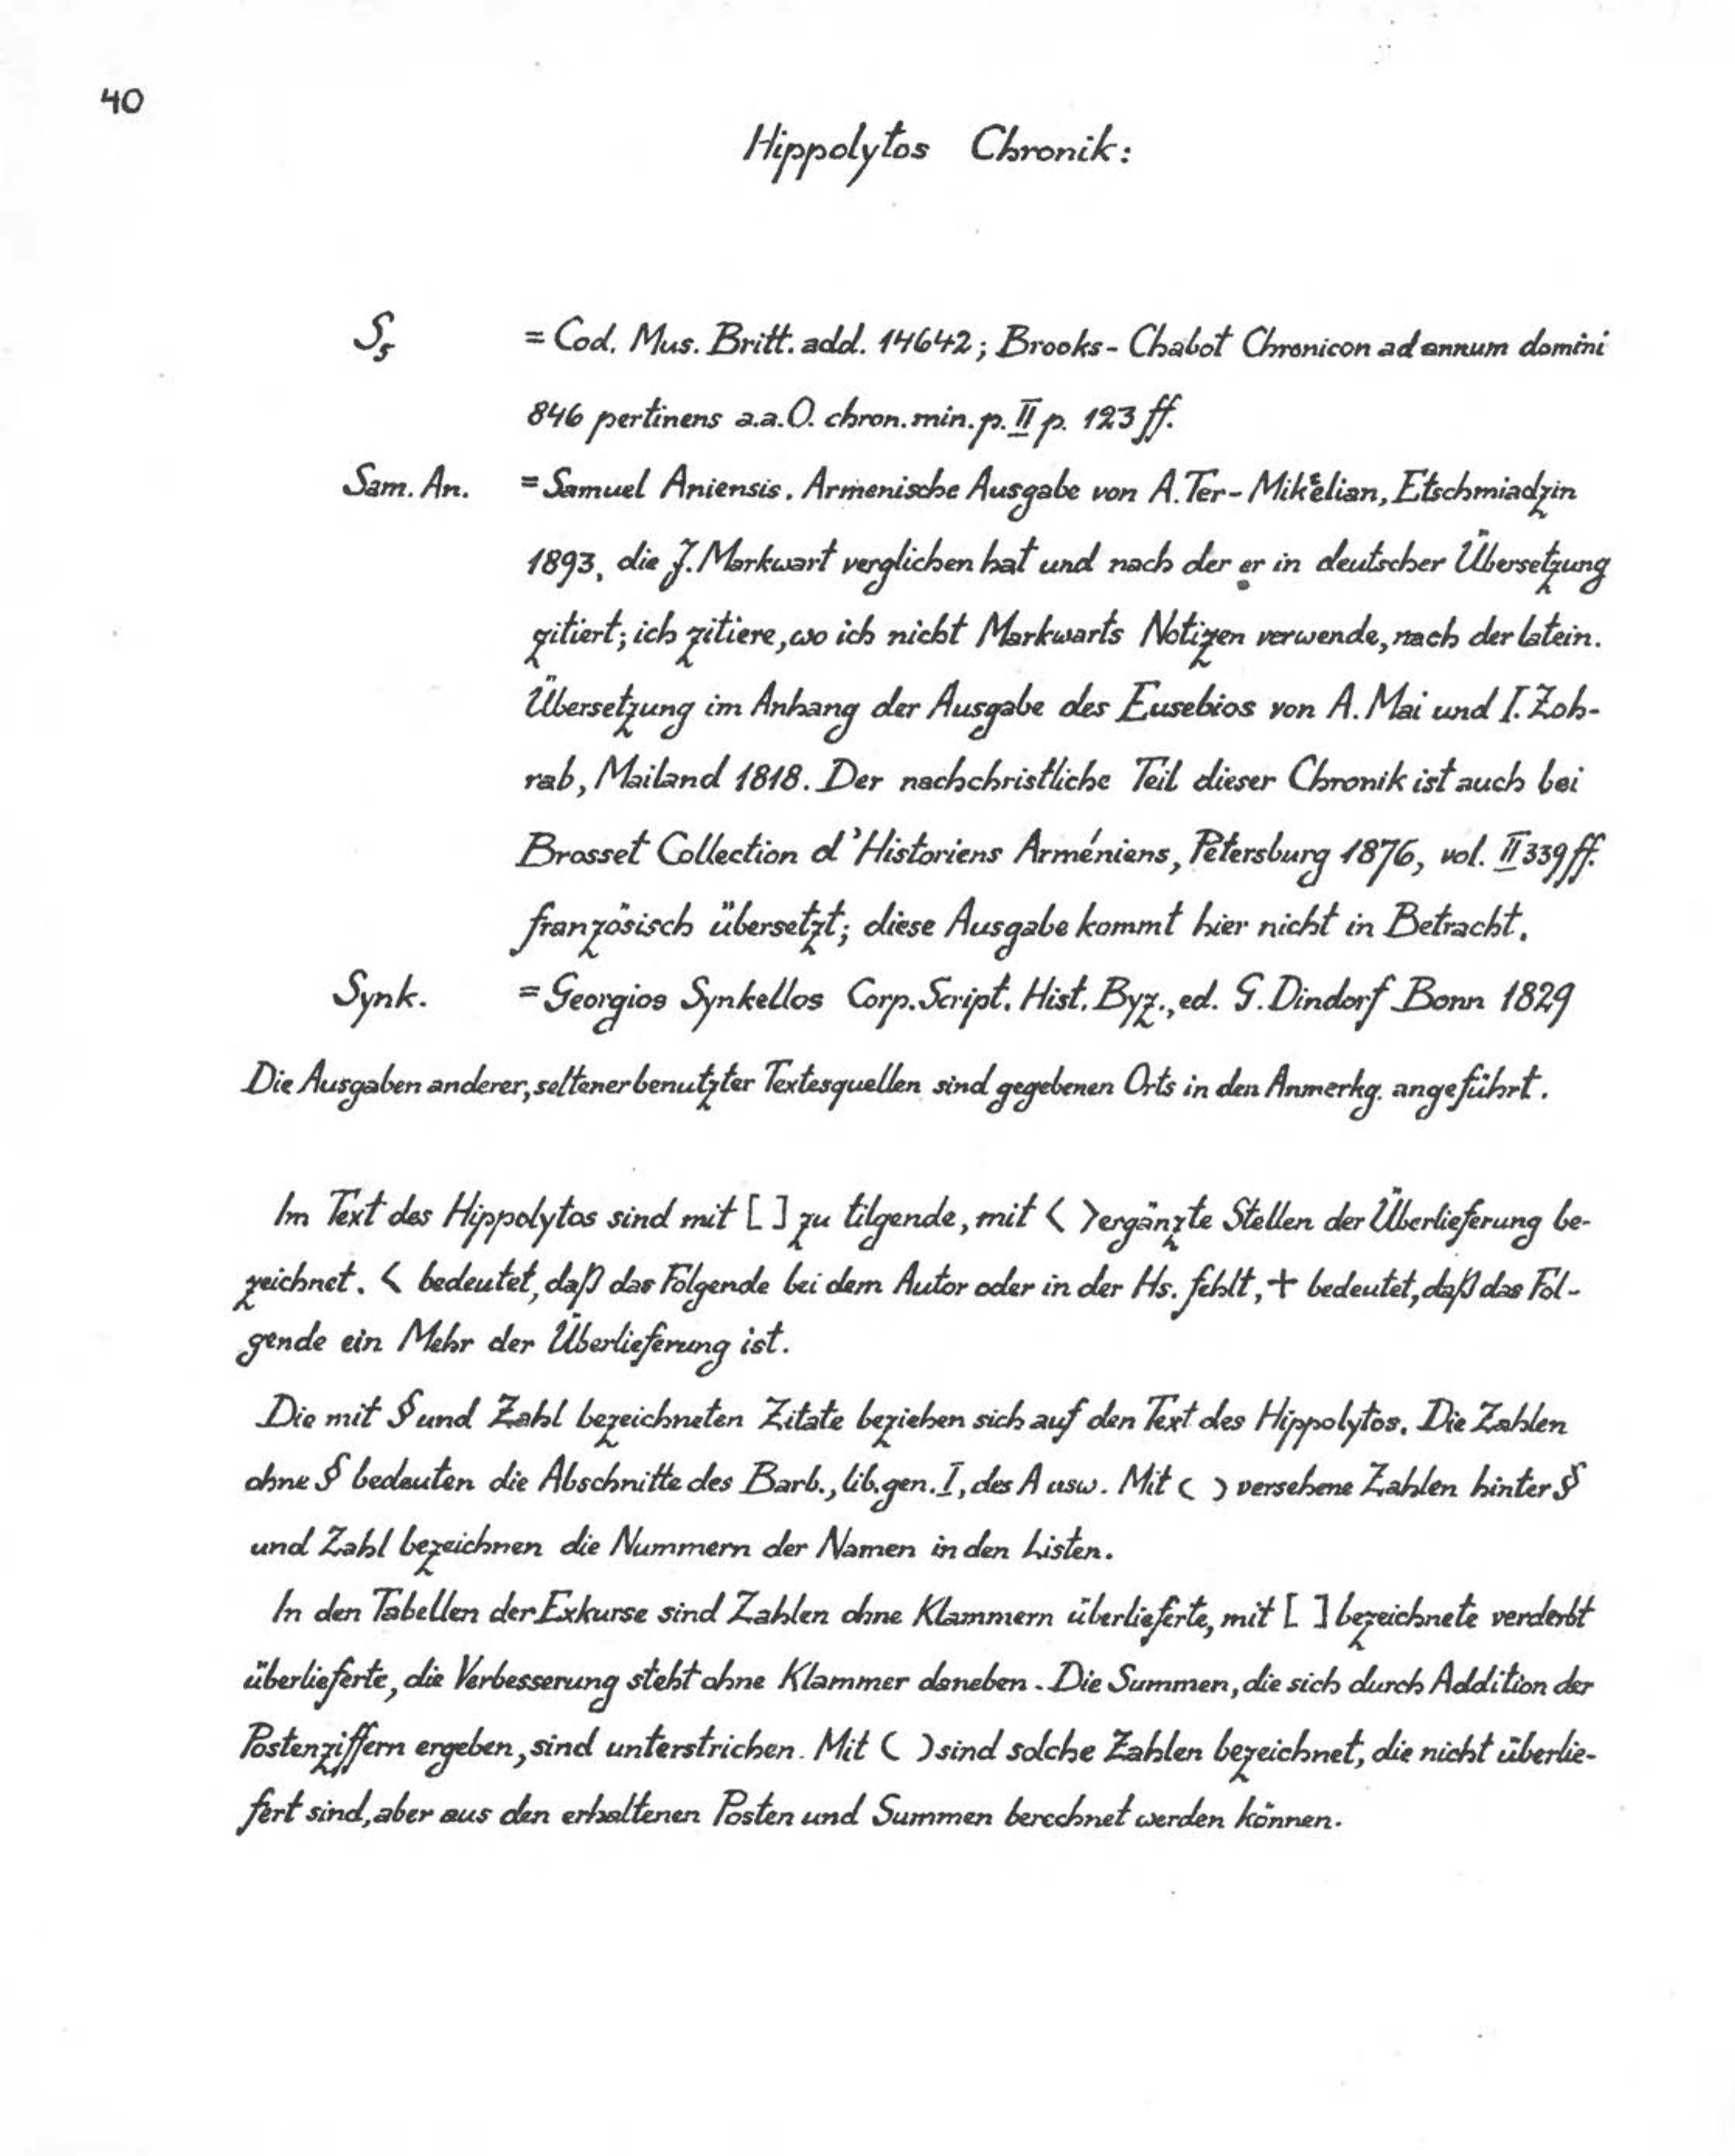 40
Hippolytos Chronik:
S₅ = Cod. Mus. Britt. add. 14642; Brooks-Chabot Chronicon ad annum domini
846 pertinens a.a.O. chron. min. p. II p. 123 ff.
Sam. An. = Samuel Aniensis. Armenische Ausgabe von A. Ter-Mikêlian, Etschmiadzin
1893, die J. Markwart verglichen hat und nach der er in deutscher Übersetzung
zitiert; ich zitiere, wo ich nicht Markwarts Notizen verwende, nach der latein.
Übersetzung im Anhang der Ausgabe des Eusebios von A. Mai und I. Zoh-
rab, Mailand 1818. Der nachchristliche Teil dieser Chronik ist auch bei
Brosset Collection d'Historiens Arméniens, Petersburg 1876, vol. II 339 ff.
französisch übersetzt; diese Ausgabe kommt hier nicht in Betracht.
Synk. = Georgios Synkellos Corp. Script. Hist. Byz., ed. G. Dindorf Bonn 1829
Die Ausgaben anderer, seltener benutzter Textesquellen sind gegebenen Orts in den Anmerkg. angeführt.
Im Text des Hippolytos sind mit [ ] zu tilgende, mit < > ergänzte Stellen der Überlieferung be-
zeichnet. < bedeutet, daß das Folgende bei dem Autor oder in der Hs. fehlt, + bedeutet, daß das Fol-
gende ein Mehr der Überlieferung ist.
Die mit § und Zahl bezeichneten Zitate beziehen sich auf den Text des Hippolytos. Die Zahlen
ohne § bedeuten die Abschnitte des Barb., lib. gen. I, des A usw. Mit ( ) versehene Zahlen hinter §
und Zahl bezeichnen die Nummern der Namen in den Listen.
In den Tabellen der Exkurse sind Zahlen ohne Klammern überlieferte, mit [ ] bezeichnete verderbt
überlieferte, die Verbesserung steht ohne Klammer daneben. Die Summen, die sich durch Addition der
Postenziffern ergeben, sind unterstrichen. Mit ( ) sind solche Zahlen bezeichnet, die nicht überlie-
fert sind, aber aus den erhaltenen Posten und Summen berechnet werden können.